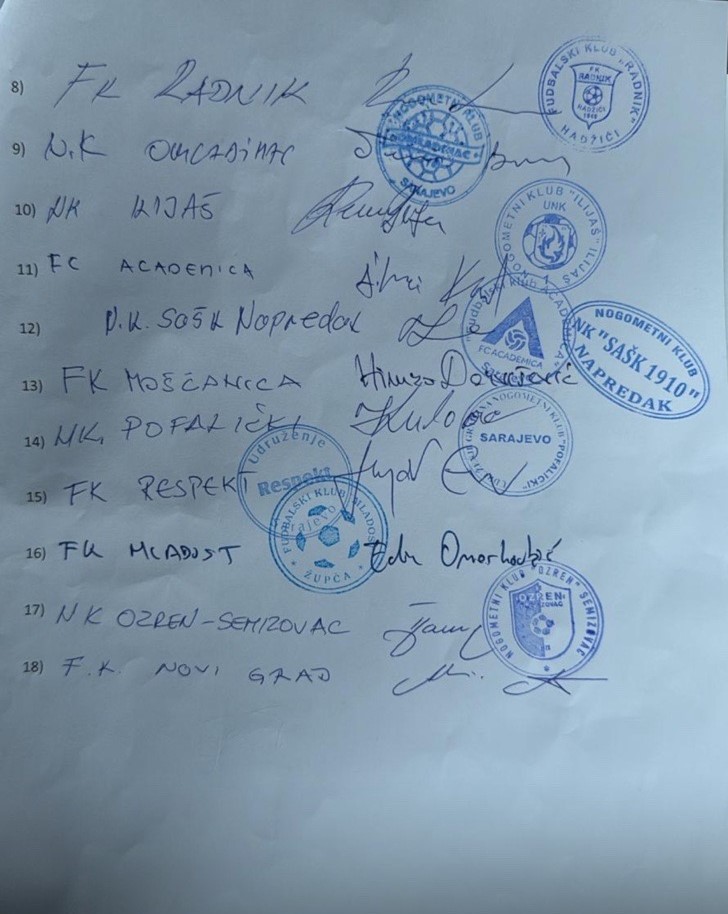 8) FK RADNIK
FUDBALSKI KLUB "RADNIK"
FK
RADNIK
HADŽIĆI
HADŽIĆI
9) N.K OMLADINAC
NOGOMETNI KLUB
OMLADINAC
SARAJEVO
10) NK ILIJAŠ
NOGOMETNI KLUB "ILIJAŠ" ILIJAS
UNK
11) FC ACADEMICA
Fudbalski klub ACADEMICA
FC ACADEMICA
12) N.K. SAŠK Napredak
NOGOMETNI KLUB
NK "SAŠK 1910"
NAPREDAK
13) FK MOŠĆANICA
14) NK. POFALIĆKI
NOGOMETNI KLUB "POFALICKI"
SARAJEVO
15) FK RESPEKT
Udruženje
Respekt
Sarajevo
16) FK MLADOST Edin Omerhodžić
FUDBALSKI KLUB MLADOST
ŽUPČA
17) NK OZREN-SEMIZOVAC
NOGOMETNI KLUB "OZREN" SEMIZOVAC
OZREN
18) F.K. NOVI GRAD